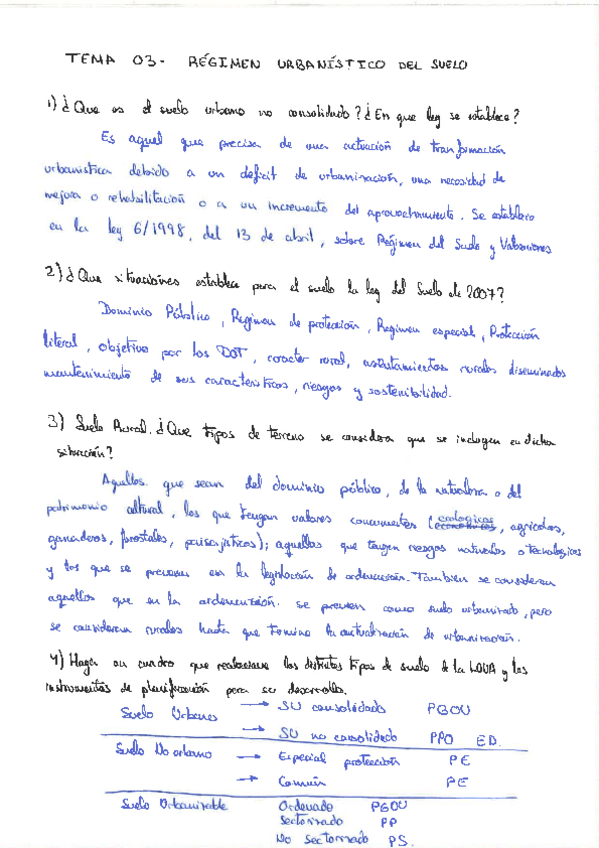 TEMA 03- RÉGIMEN URBANÍSTICO DEL SUELO
1) ¿Que es el suelo urbano no consolidado? ¿En que ley se establece?
Es aquel que precisa de una actuación de transformación
urbanistica debido a un deficit de urbanización, una necesidad de
mejora o rehabilitación o a un incremento del aprovechamiento. Se establece
en la ley 6/1998, del 13 de abril, sobre Régimen del Suelo y Valoraciones
2) ¿Que situaciones establece para el suelo la ley del Suelo de 2007?
Dominio Público, Regimen de protección, Regimen especial, Protección
literal, objetivo por los DOT, caracter rural, asentamientos rurales diseminados
mantenimiento de sus características, riesgos y sostenibilidad.
3) Suelo Rural. ¿Que tipos de terreno se considera que se incluyen en dicha
situación?
Aquellos que sean del dominio público, de la naturaleza o del
patrimonio cultural, los que tengan valores concurrentes (ecologicos, agricolas,
ganaderos, forestales, paisajisticos); aquellos que tengan riesgos naturales o tecnologicos
y los que se prevean en la legislación de ordenación. Tambien se consideran
aquellos que en la ordenación se preveen como suelo urbanizado, pero
se consideran rurales hasta que termine la actualización de urbanización.
4) Haga un cuadro que relacione los distintos tipos de suelo de la LOUA y los
instrumentos de planificación para su desarrollo.
Suelo Urbano → SU consolidado PGOU
→ SU no consolidado PPO ED.
Suelo No urbano → Especial protección PE
→ Común PE
Suelo Urbanizable Ordenado PGOU
Sectorizado PP
No Sectorizado PS.